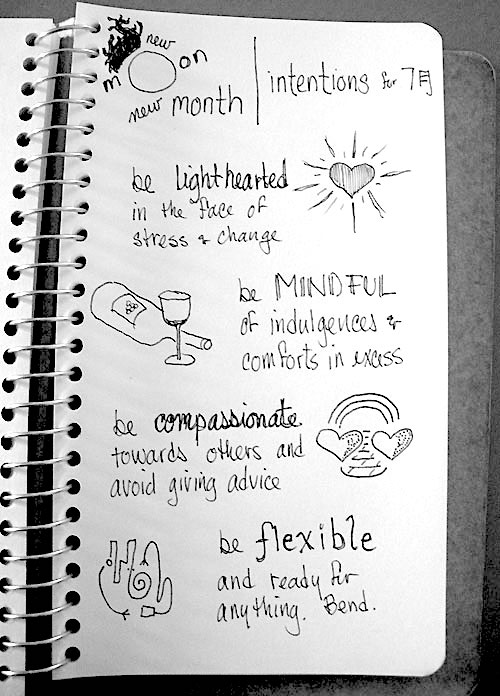 new
moon
new month | intentions for 7月
be lighthearted
in the face of
stress & change
be MINDFUL
of indulgences &
comforts in excess
be compassionate
towards others and
avoid giving advice
be flexible
and ready for
anything. Bend.